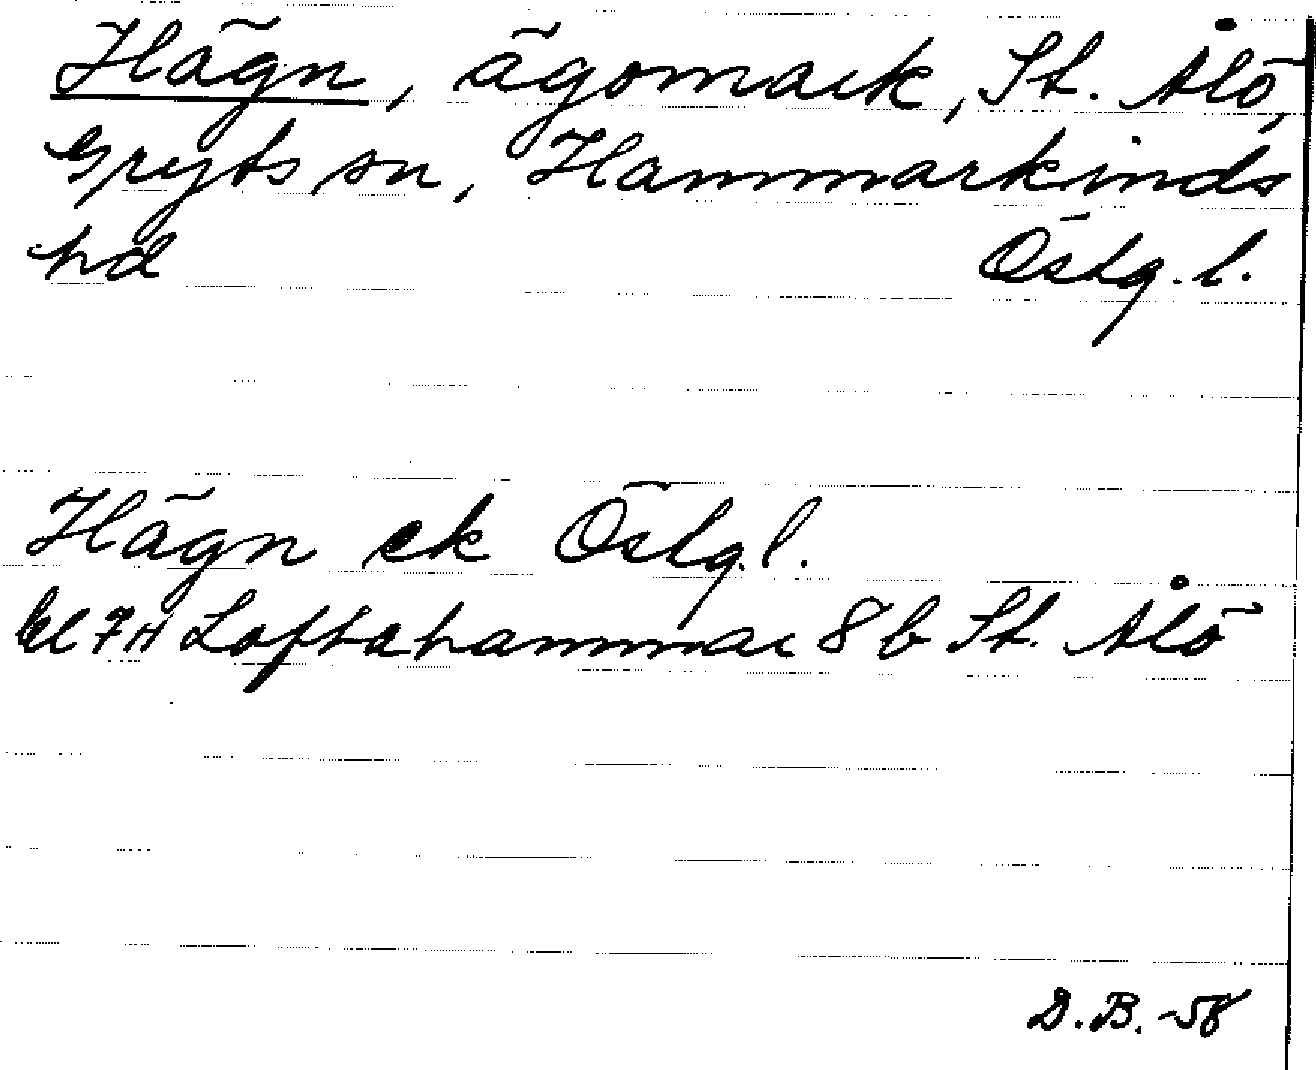 Hägn, ägomark, St. Ålö,
Gryts sn, Hammarkinds
hd Östg. l.
Hägn ek Östg. l.
bl 7H Loftahammar 8b St. Ålö
D.B. -58